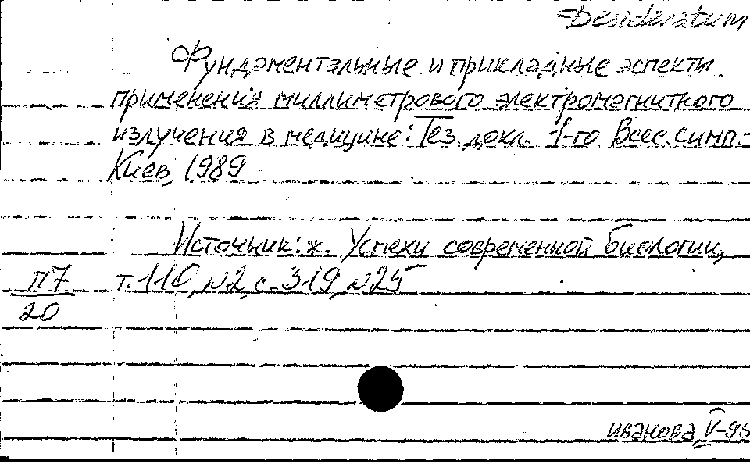 Desideratum
Фундаментальные и прикладные аспекты
применения миллиметрового электромагнитного
излучения в медицине: Тез. докл. 1-го Всес. симп.-
Киев, 1989
Источник: ж. Успехи современной биологии,
т. 110, №2, с. 319, №25
п7
20
Иванова, V-95